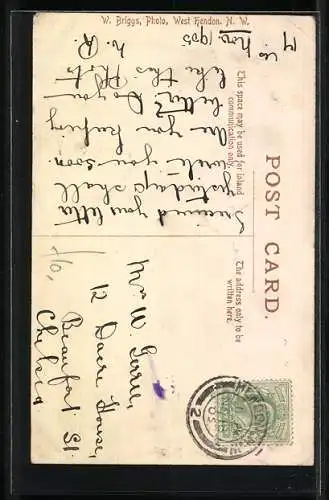 W. Briggs, Photo, West Hendon. N. W.
POST CARD.
This space may be used for inland
communication only.
The address only to be
written here.
17
Nov. 1905
Received your letter
yesterday shall
write you soon
Are you keeping
better? Do you
like this Photo
N. R.
Mr W.
12 Dacre House,
Beaufort St.
Chelsea
7/0,
HENDON
05
2